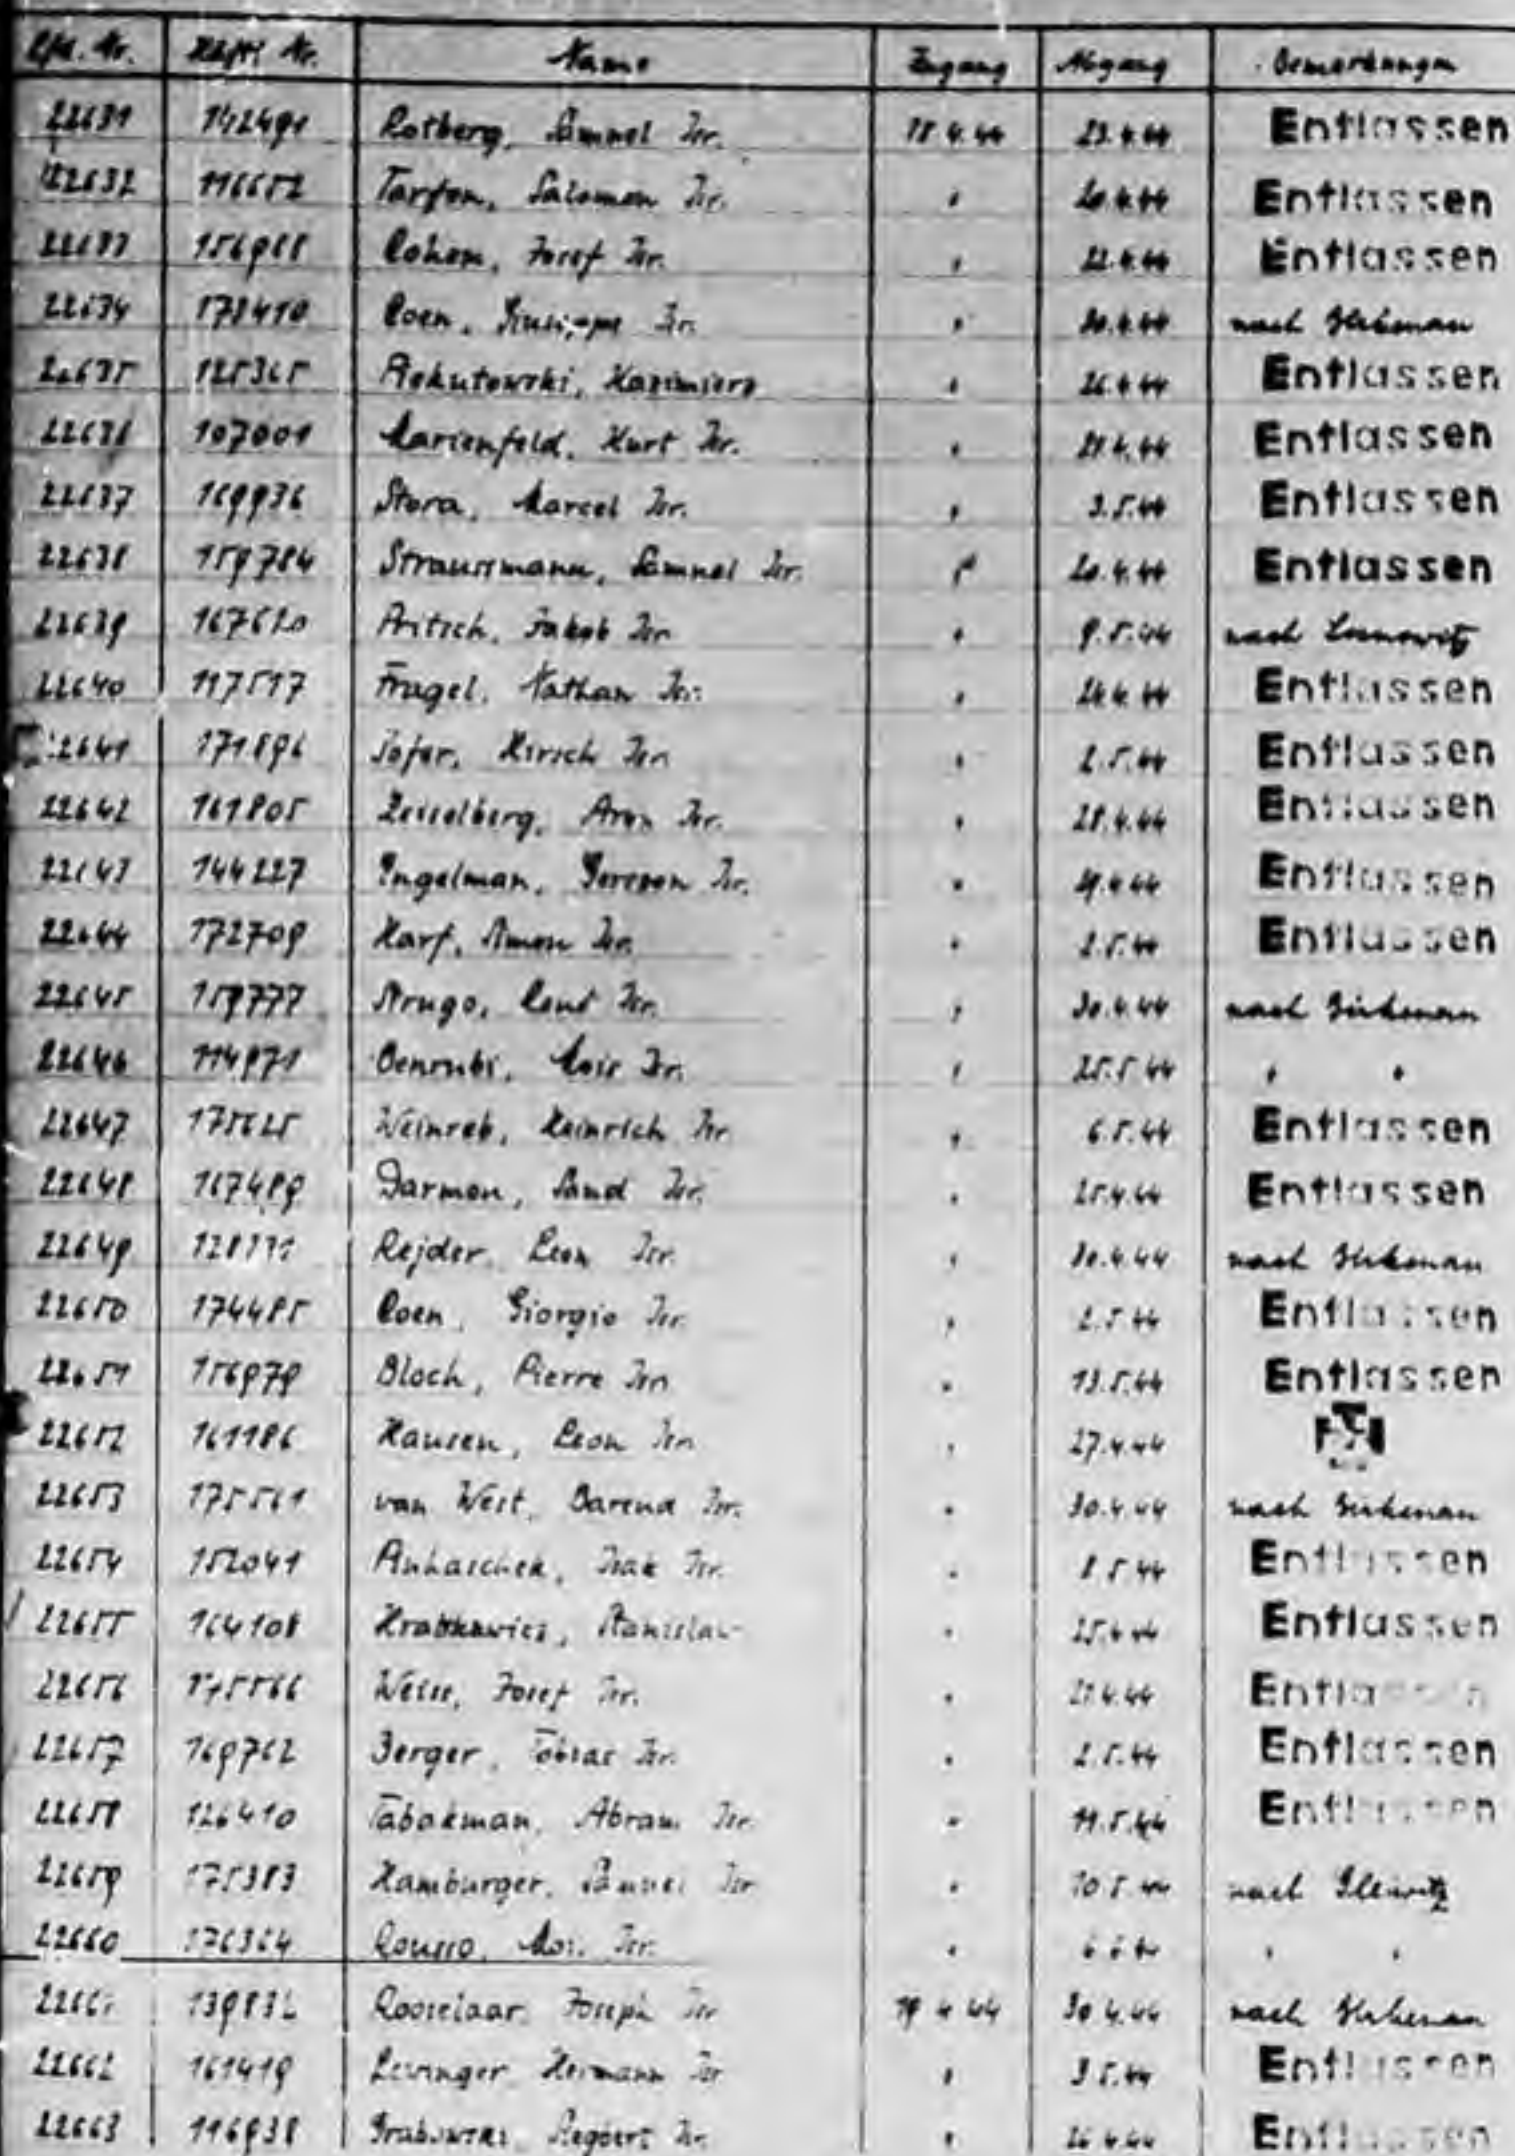 Lfd. Nr. Häftl. Nr. Name Zugang Abgang Bemerkungen
22631 142491 Rotberg, Samuel Isr. 18.4.44 23.4.44 Entlassen
22632 116652 Tarfon, Salomon Isr. " 20.4.44 Entlassen
22633 156988 Cohen, Josef Isr. " 22.4.44 Entlassen
22634 173410 Coen, Giuseppe Isr. " 30.4.44 nach Birkenau
22635 125365 Piekutowski, Kazimierz " 26.4.44 Entlassen
22636 107001 Marienfeld, Kurt Isr. " 21.4.44 Entlassen
22637 169936 Stora, Marcel Isr. " 3.5.44 Entlassen
22638 159784 Straussmann, Samuel Isr. " 20.4.44 Entlassen
22639 167620 Pritsch, Jakob Isr. " 9.5.44 nach Sosnowitz
22640 117517 Fragel, Nathan Isr. " 24.4.44 Entlassen
22641 171896 Sofer, Hirsch Isr. " 2.5.44 Entlassen
22642 161805 Zeisselberg, Aron Isr. " 28.4.44 Entlassen
22643 144227 Engelman, Gerszon Isr. " 29.4.44 Entlassen
22644 172709 Karf, Simon Isr. " 2.5.44 Entlassen
22645 159777 Strugo, Isr. " 30.4.44 nach Birkenau
22646 114971 Benrubi, Mois Isr. " 25.5.44 " "
22647 175625 Weinreb, Heinrich Isr. " 6.5.44 Entlassen
22648 167489 Darmon, Isr. " 25.4.44 Entlassen
22649 Rejder, Leon Isr. " 30.4.44 nach Birkenau
22650 174485 Coen, Giorgio Isr. " 2.5.44 Entlassen
22651 156979 Bloch, Pierre Isr. " 13.5.44 Entlassen
22652 161186 Hausen, Leon Isr. " 27.4.44
22653 175561 van West, Barend Isr. " 30.4.44 nach Birkenau
22654 152041 Isak Isr. " 8.5.44 Entlassen
22655 164108 Stanislaw " 25.4.44 Entlassen
22656 175566 Weiss, Josef Isr. " 21.4.44 Entlassen
22657 169762 Berger, Tobias Isr. " 2.5.44 Entlassen
22658 126410 Tabakman, Abram Isr. " 11.5.44 Entlassen
22659 175383 Hamburger, Samuel Isr. " 10.5.44 nach Gleiwitz
22660 176364 Cousso, Isr. " " "
22661 139832 Rooselaar, Joseph Isr. 19.4.44 30.4.44 nach Birkenau
22662 161419 Levinger, Hermann Isr. " 3.5.44 Entlassen
22663 116938 Grabowski, Isr. " 26.4.44 Entlassen